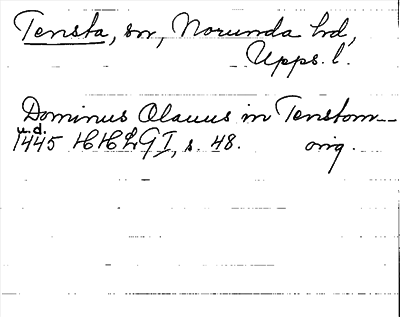 Tensta, sn, Norunda hd,
Upps. l.
Dominus Olauus in Tenstom
u.d.
1445 HHLGI, s. 48. orig.